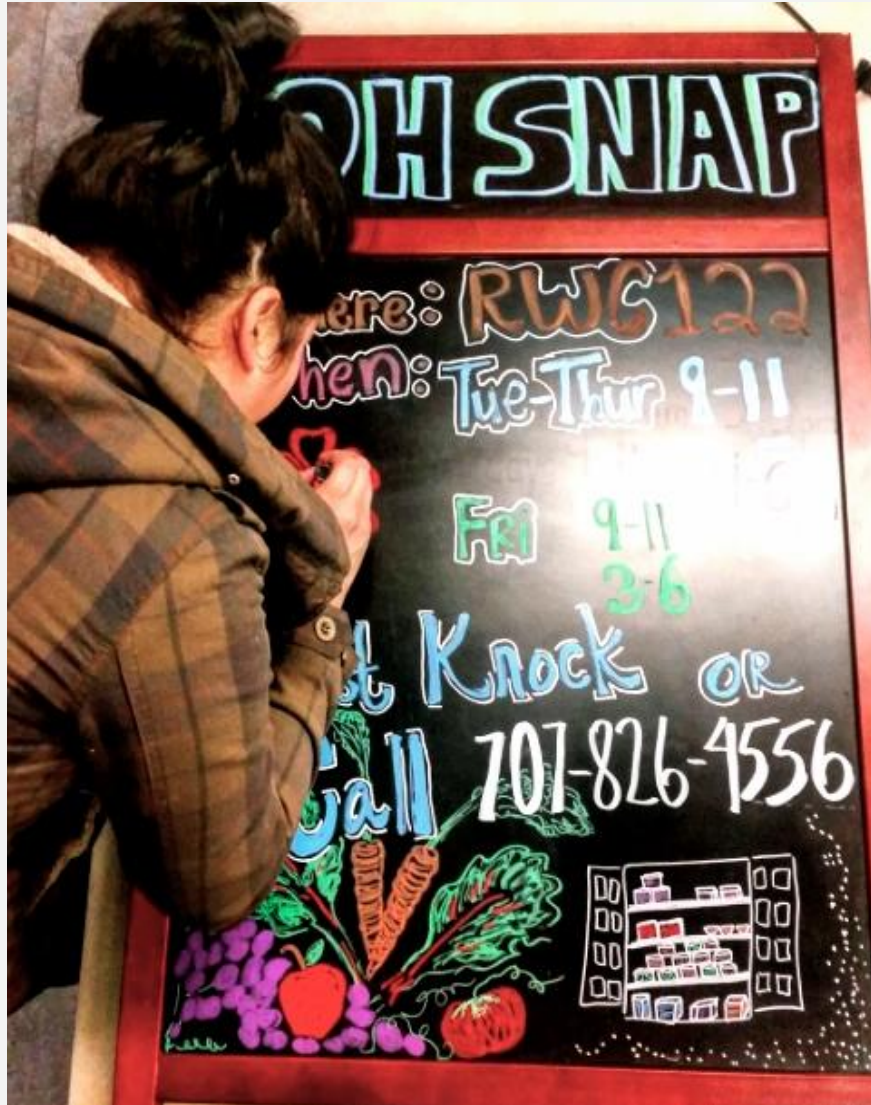 OH SNAP
here: RWC 122
hen: Tue-Thur 9-11
FRi 9-11
3-6
st Knock OR
Call 707-826-4556